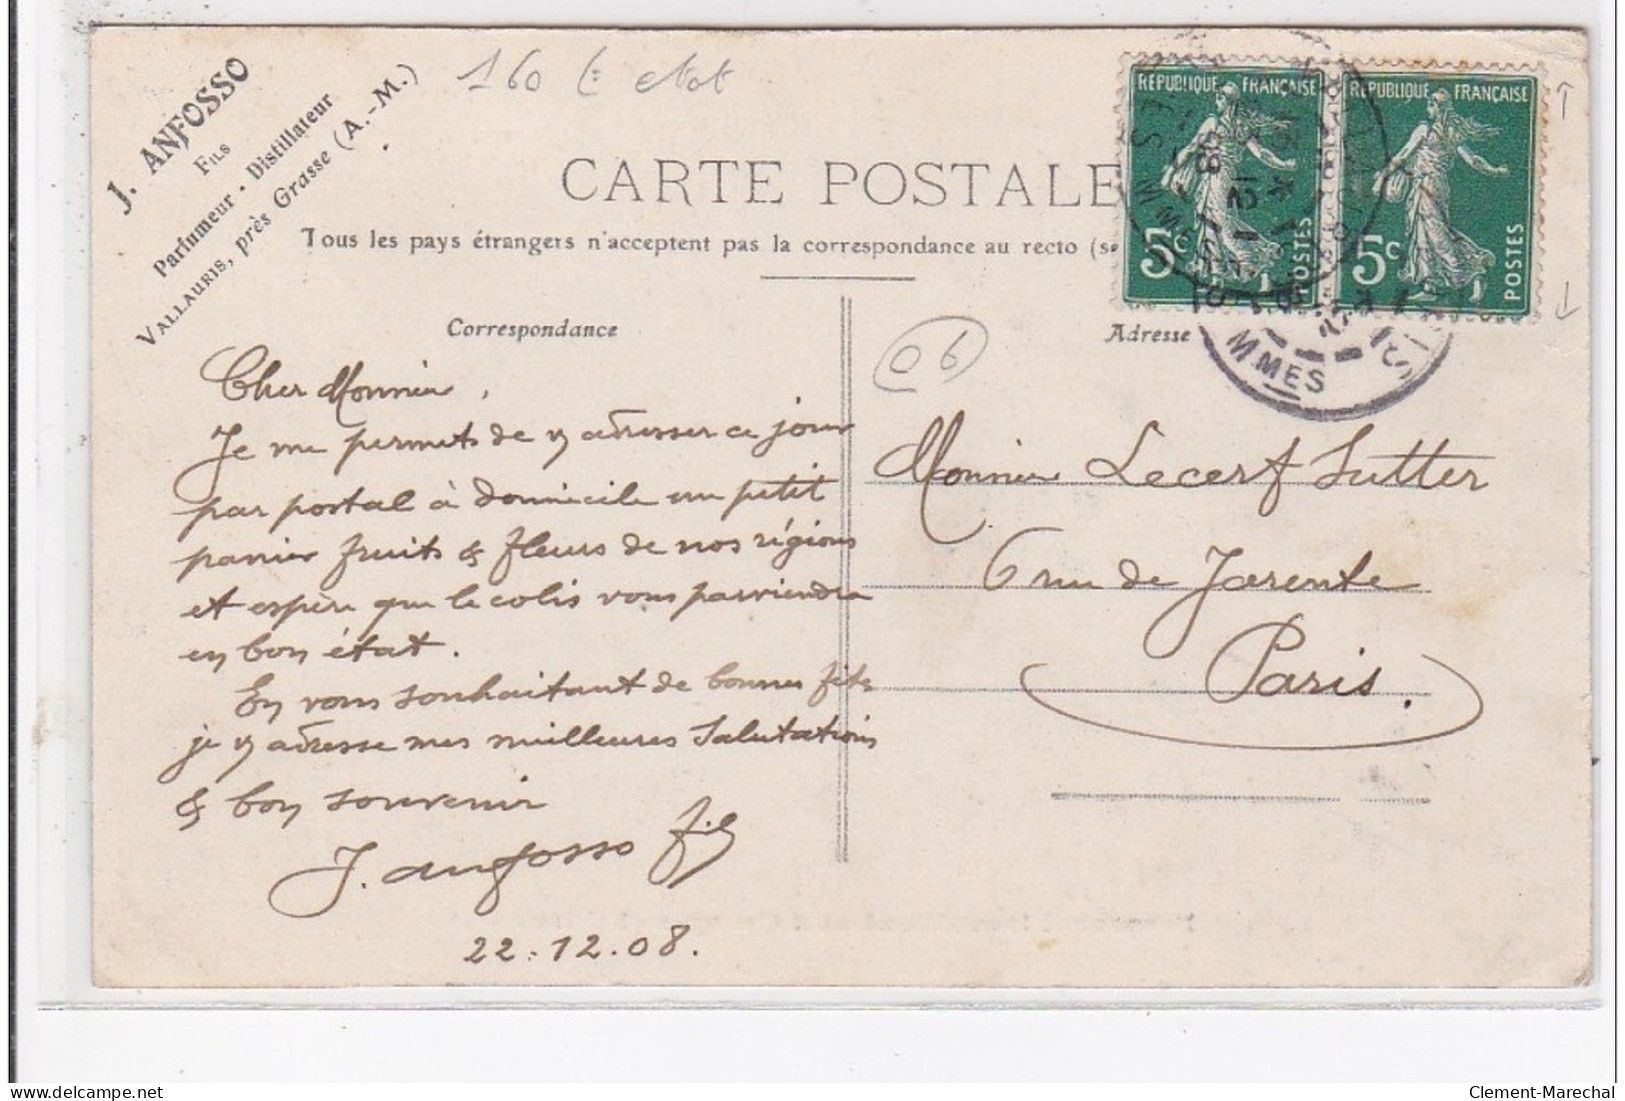 J. ANFOSSO
FILS
Parfumeur - Distillateur
VALLAURIS, près Grasse (A.-M.)
160 etat
CARTE POSTALE
Tous les pays étrangers n'acceptent pas la correspondance au recto (se
RÉPUBLIQUE FRANÇAISE
5c
POSTES
RÉPUBLIQUE FRANÇAISE
5c
POSTES
MMES
Correspondance
Adresse
06
Cher Monsieur,
Je me permets de vs adresser ce jour
par postal à domicile un petit
panier fruits & fleurs de nos régions
et espère que le colis vous parviendra
en bon état.
En vous souhaitant de bonnes fêtes
je vs adresse mes meilleures salutations
& bon souvenir
J. Anfosso fils
22.12.08.
Monsieur Lecerf Sutter
6 rue de Jarente
Paris.
Clement-Marechal